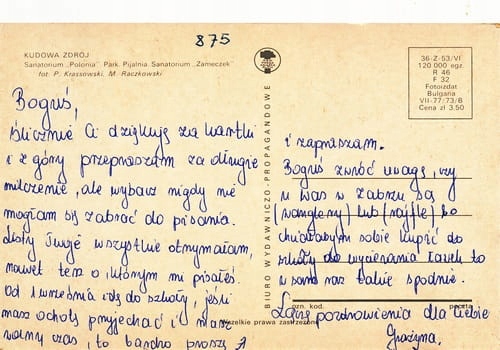 875
KUDOWA ZDRÓJ
Sanatorium „Polonia". Park. Pijalnia. Sanatorium „Zameczek".
fot: P. Krassowski. M. Raczkowski
36-Z-53/VI
120 000 egz.
R 46
F 32
Fotoizdat
Bulgaria
VII-77:73/B
Cena zł 3.50
BIURO WYDAWNICZO-PROPAGANDOWE
Boguś,
ślicznie Ci dziękuję za kartki
i z góry przepraszam za długie
milczenie, ale wybacz nigdy nie
mogłam się zabrać do pisania.
Listy Twoje wszystkie otrzymałam,
nawet ten o którym mi pisałeś.
Od 1 września idę do szkoły, jeśli
masz ochotę przyjechać i masz
wolny czas, to bardzo proszę
i zapraszam.
Boguś zwróć uwagę, czy
u Was w Zabrzu są
(wranglery) lub (rajfle), bo
chciałabym sobie kupić do
szkoły do wycierania ławek to
u nas takie spodnie.
Łączę pozdrowienia dla Ciebie
Grażyna.
ozn. kod.
poczta
Wszelkie prawa zastrzeżone